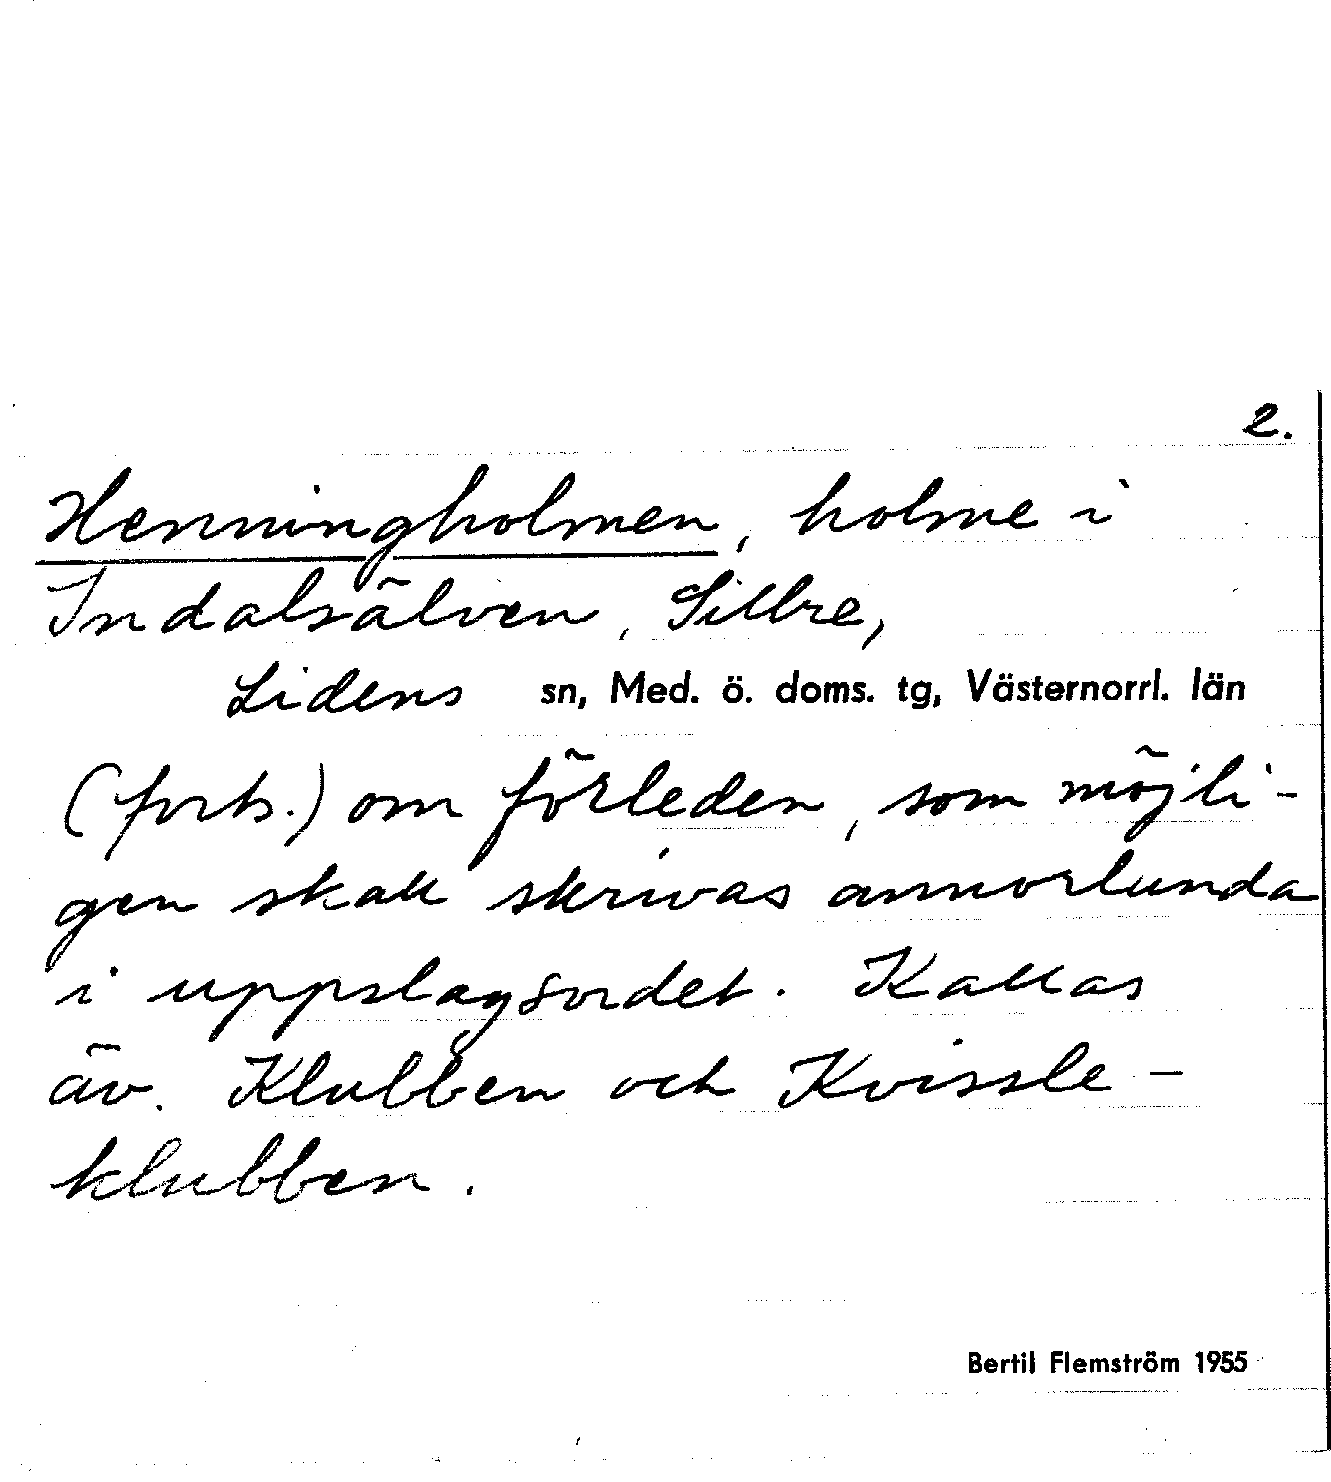 2.
Henningholmen, holme i
Indalsälven, Sillre,
Lidens sn, Med. ö. doms. tg, Västernorrl. län
(forts.) om förleden, som möjli-
gen skall skrivas annorlunda
i uppslagsordet. Kallas
äv. Klubben och Kvissle-
klubben.
Bertil Flemström 1955